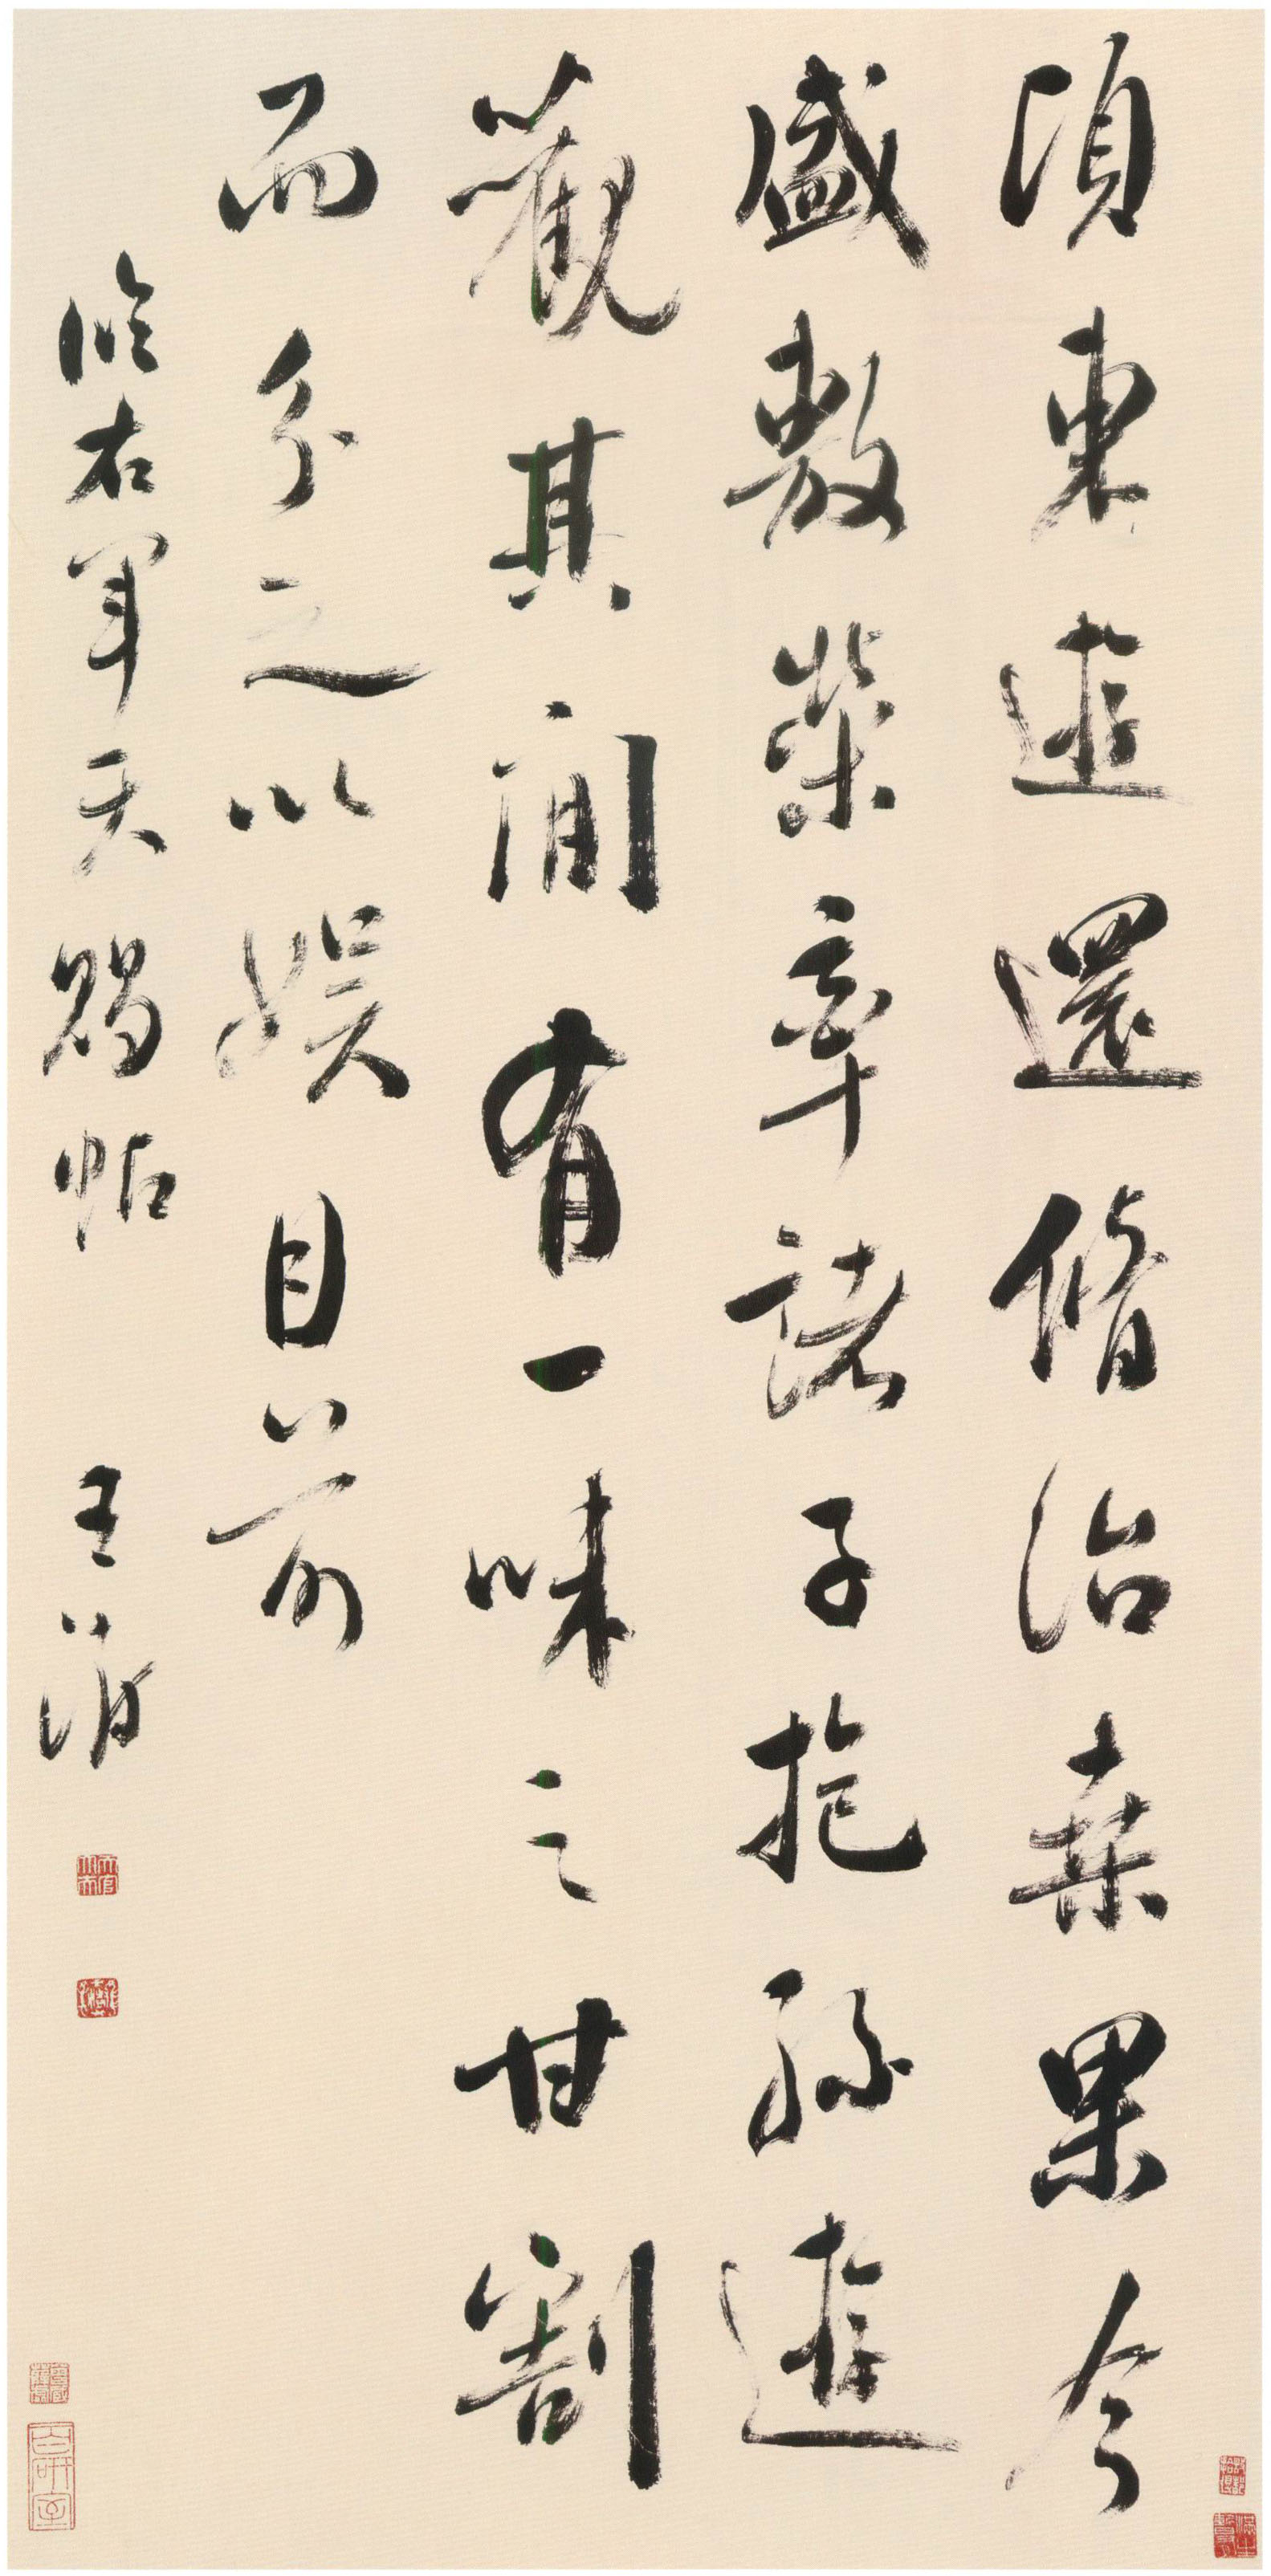 頃東遊還脩治桑果今
盛敷榮率諸子抱孫遊
觀其間有一味之甘割
而分之以娛目前
臨右軍天賜帖 王澍
百研室